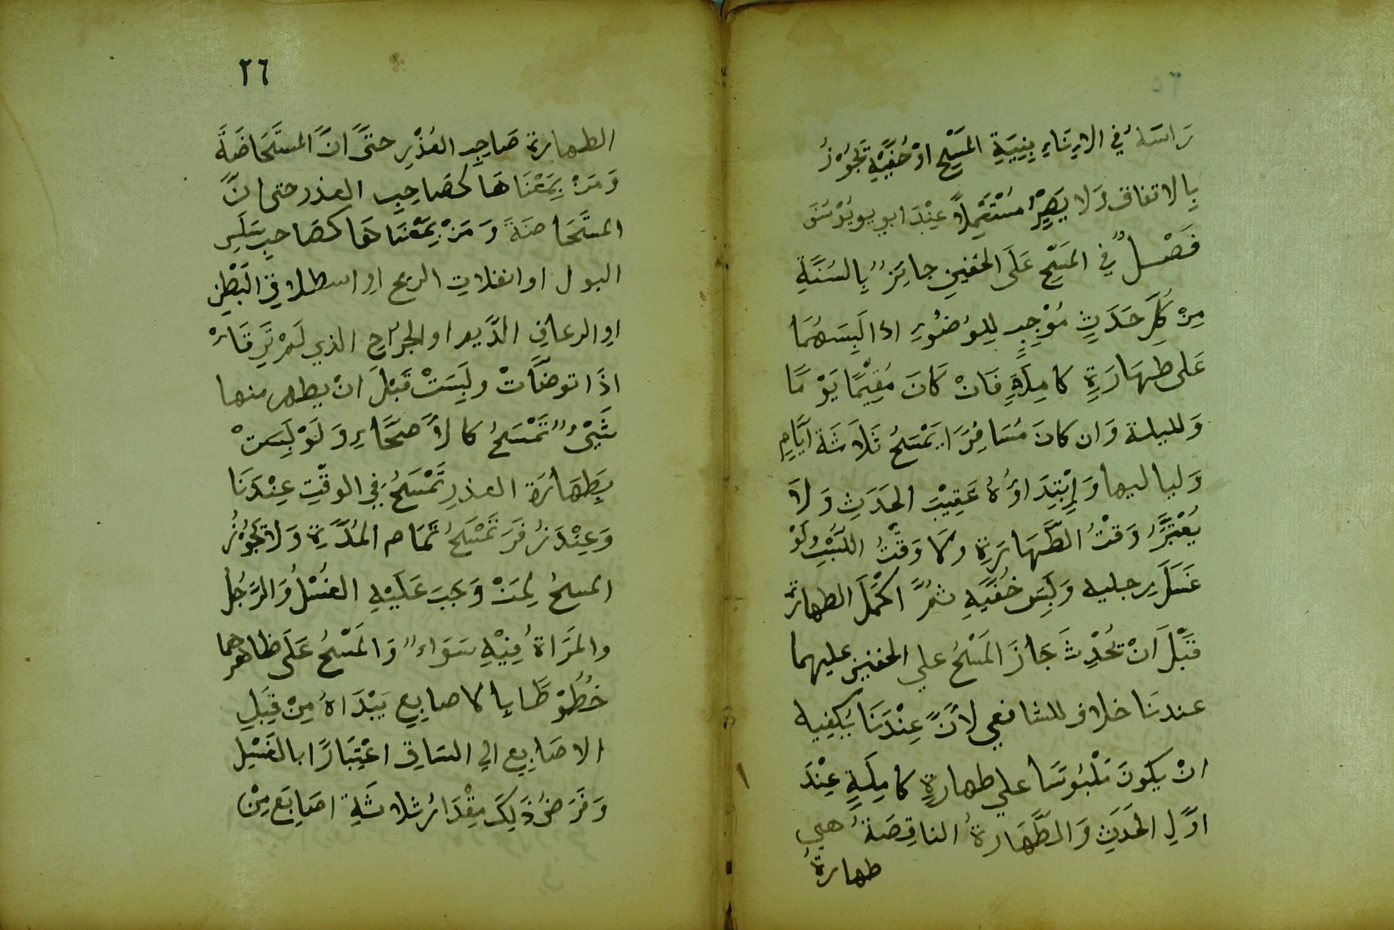 رَاسَهُ في الاِنَاءِ بِنِيَةِ المَسْحِ اوْ خُفَّيْهِ تَجُوْزُ
بِالاتفاق وَلا يَصِيْرُ مُسْتَعْمِلاً عِنْدَ ابي يويُوْسُفَ
فَصْلٌ في المَسْحِ عَلَى الخفينِ جايَزٌ بِالسُنَّةِ
مِنْ كُلِّ حَدَثٍ مُوْجِبٍ لِلوُضُوْءِ اذا لَبِسَهُمَا
عَلى طهَارَةٍ كامِلَةٍ فَانْ كَانَ مُقِيْمًا يَوْمًا
وَلليلة وَان كانَ مُسَافِرًا يَمْسَحُ ثَلاثَةَ ايَّامٍ
وَلياليها وَابْتِدَاؤُهُ عَقِيْبَ الحَدَثِ وَلاَ
يُعْتَبَرُ وَقْتُ الطَّهَارَةِ ولا وَقْتُ اللُّبْسِ وَلَوْ
غَسَلَ رجليه وَلَبِسَ خُفَّيْهِ ثُمَّ اكْمَلَ الطهارة
قَبْلَ انْ تُحْدِثَ جَازَ المَسْحُ علي الخفين عليهما
عندنَا خلاف للشافعي لاَنَّ عِنْدَنَا يَكْفِيه
انْ يَكونَ مَلْبُوسًا علي طهارةٍ كامِلَةٍ عِنْدَ
اوَّلِ الحَدَثِ وَالطَّهَارةُ الناقِصَةُ هي
طهارةُ
٢٦
الطهارة صَاحِبِ العُذْرِ حتىَّ انَّ المستَحَاضَةَ
وَمَنْ بِمَعْنَاهَا كصَاحِبِ العذر حتى انَّ
المستَحَاضَةَ وَمَنْ بِمَعْنَاهَا كصَاحبِ سَلَسِ
البول او انفلاتِ الريح او اسطلاقِ البَطْنِ
او الرعافِ الدَّيم او الجراحِ الذي لَمْ تَرْقَاءْ
اذَا توضَّاتْ ولَبِسَتْ قَبْلَ انْ يظهر منها
شَيْءٌ تَمْسَحُ كالأَصِحَّاءِ وَلَوْ لَبِسَتْ
بِطَهَارَة العذرِ تَمْسَحُ فِي الوقْتِ عِنْدَنَا
وَعِنْدَ زُفَرَ تَمْسَحُ تَمَام المُدَّةِ وَلا تَجُوْزُ
المسحُ لِمَنْ وَجَبَ عَلَيْهِ الغُسْلُ وَالرَّجُلُ
والمَرَاةُ فِيْهِ سَوَاءٌ وَالمَسْحُ عَلَى ظاهرهما
خُطُوْطًا بِالاصابِعِ يَبْدَاهُ مِنْ قِبَلِ
الاصَابِعِ الي السَاقِ اعْتِبَارًا بالغَسْلِ
وَفَرَضُ ذَلِكَ مِقْدَارُ ثلاثَةِ اصَابِعَ مِنْ